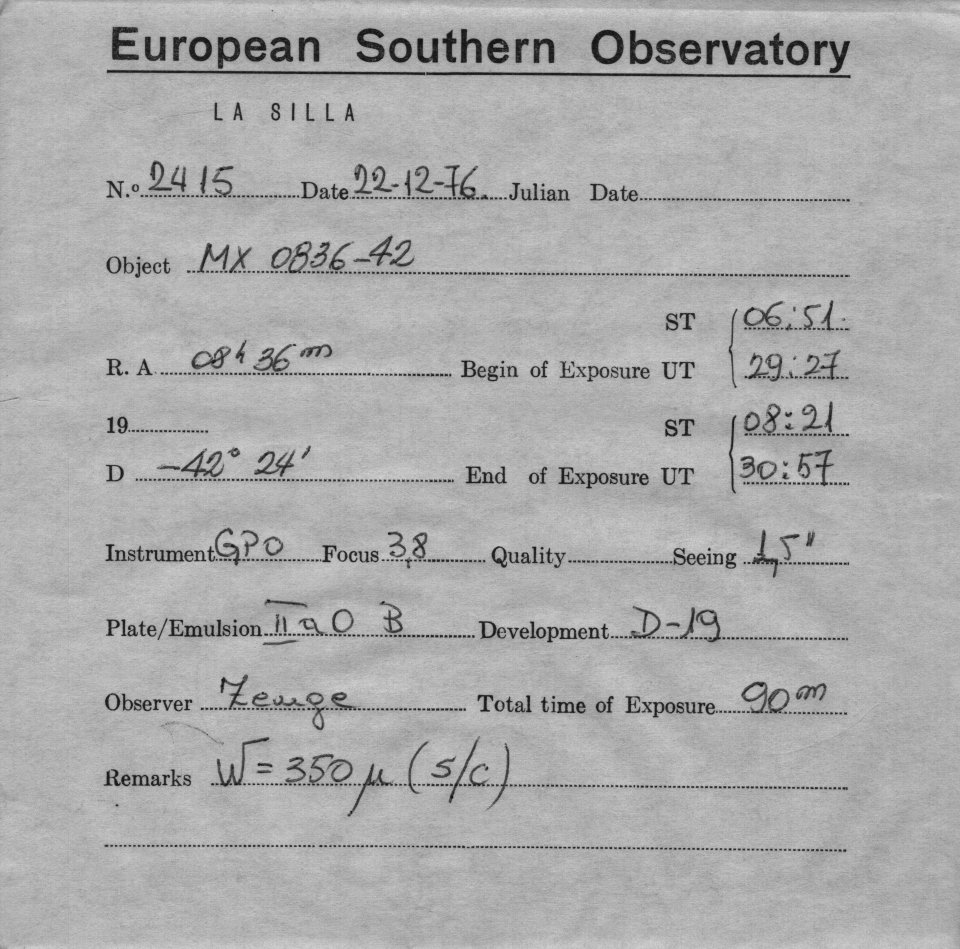 European Southern Observatory
LA SILLA
N.º 2415 Date 22-12-76. Julian Date
Object MX 0836-42
ST 06:51
R. A. 08h 36m Begin of Exposure UT 29:27
19 ST 08:21
D -42° 24' End of Exposure UT 30:57
Instrument GPO Focus 3,8 Quality Seeing 1,5"
Plate/Emulsion IIaO B Development D-19
Observer Zeuge Total time of Exposure 90m
Remarks W = 350 μ (s/c)